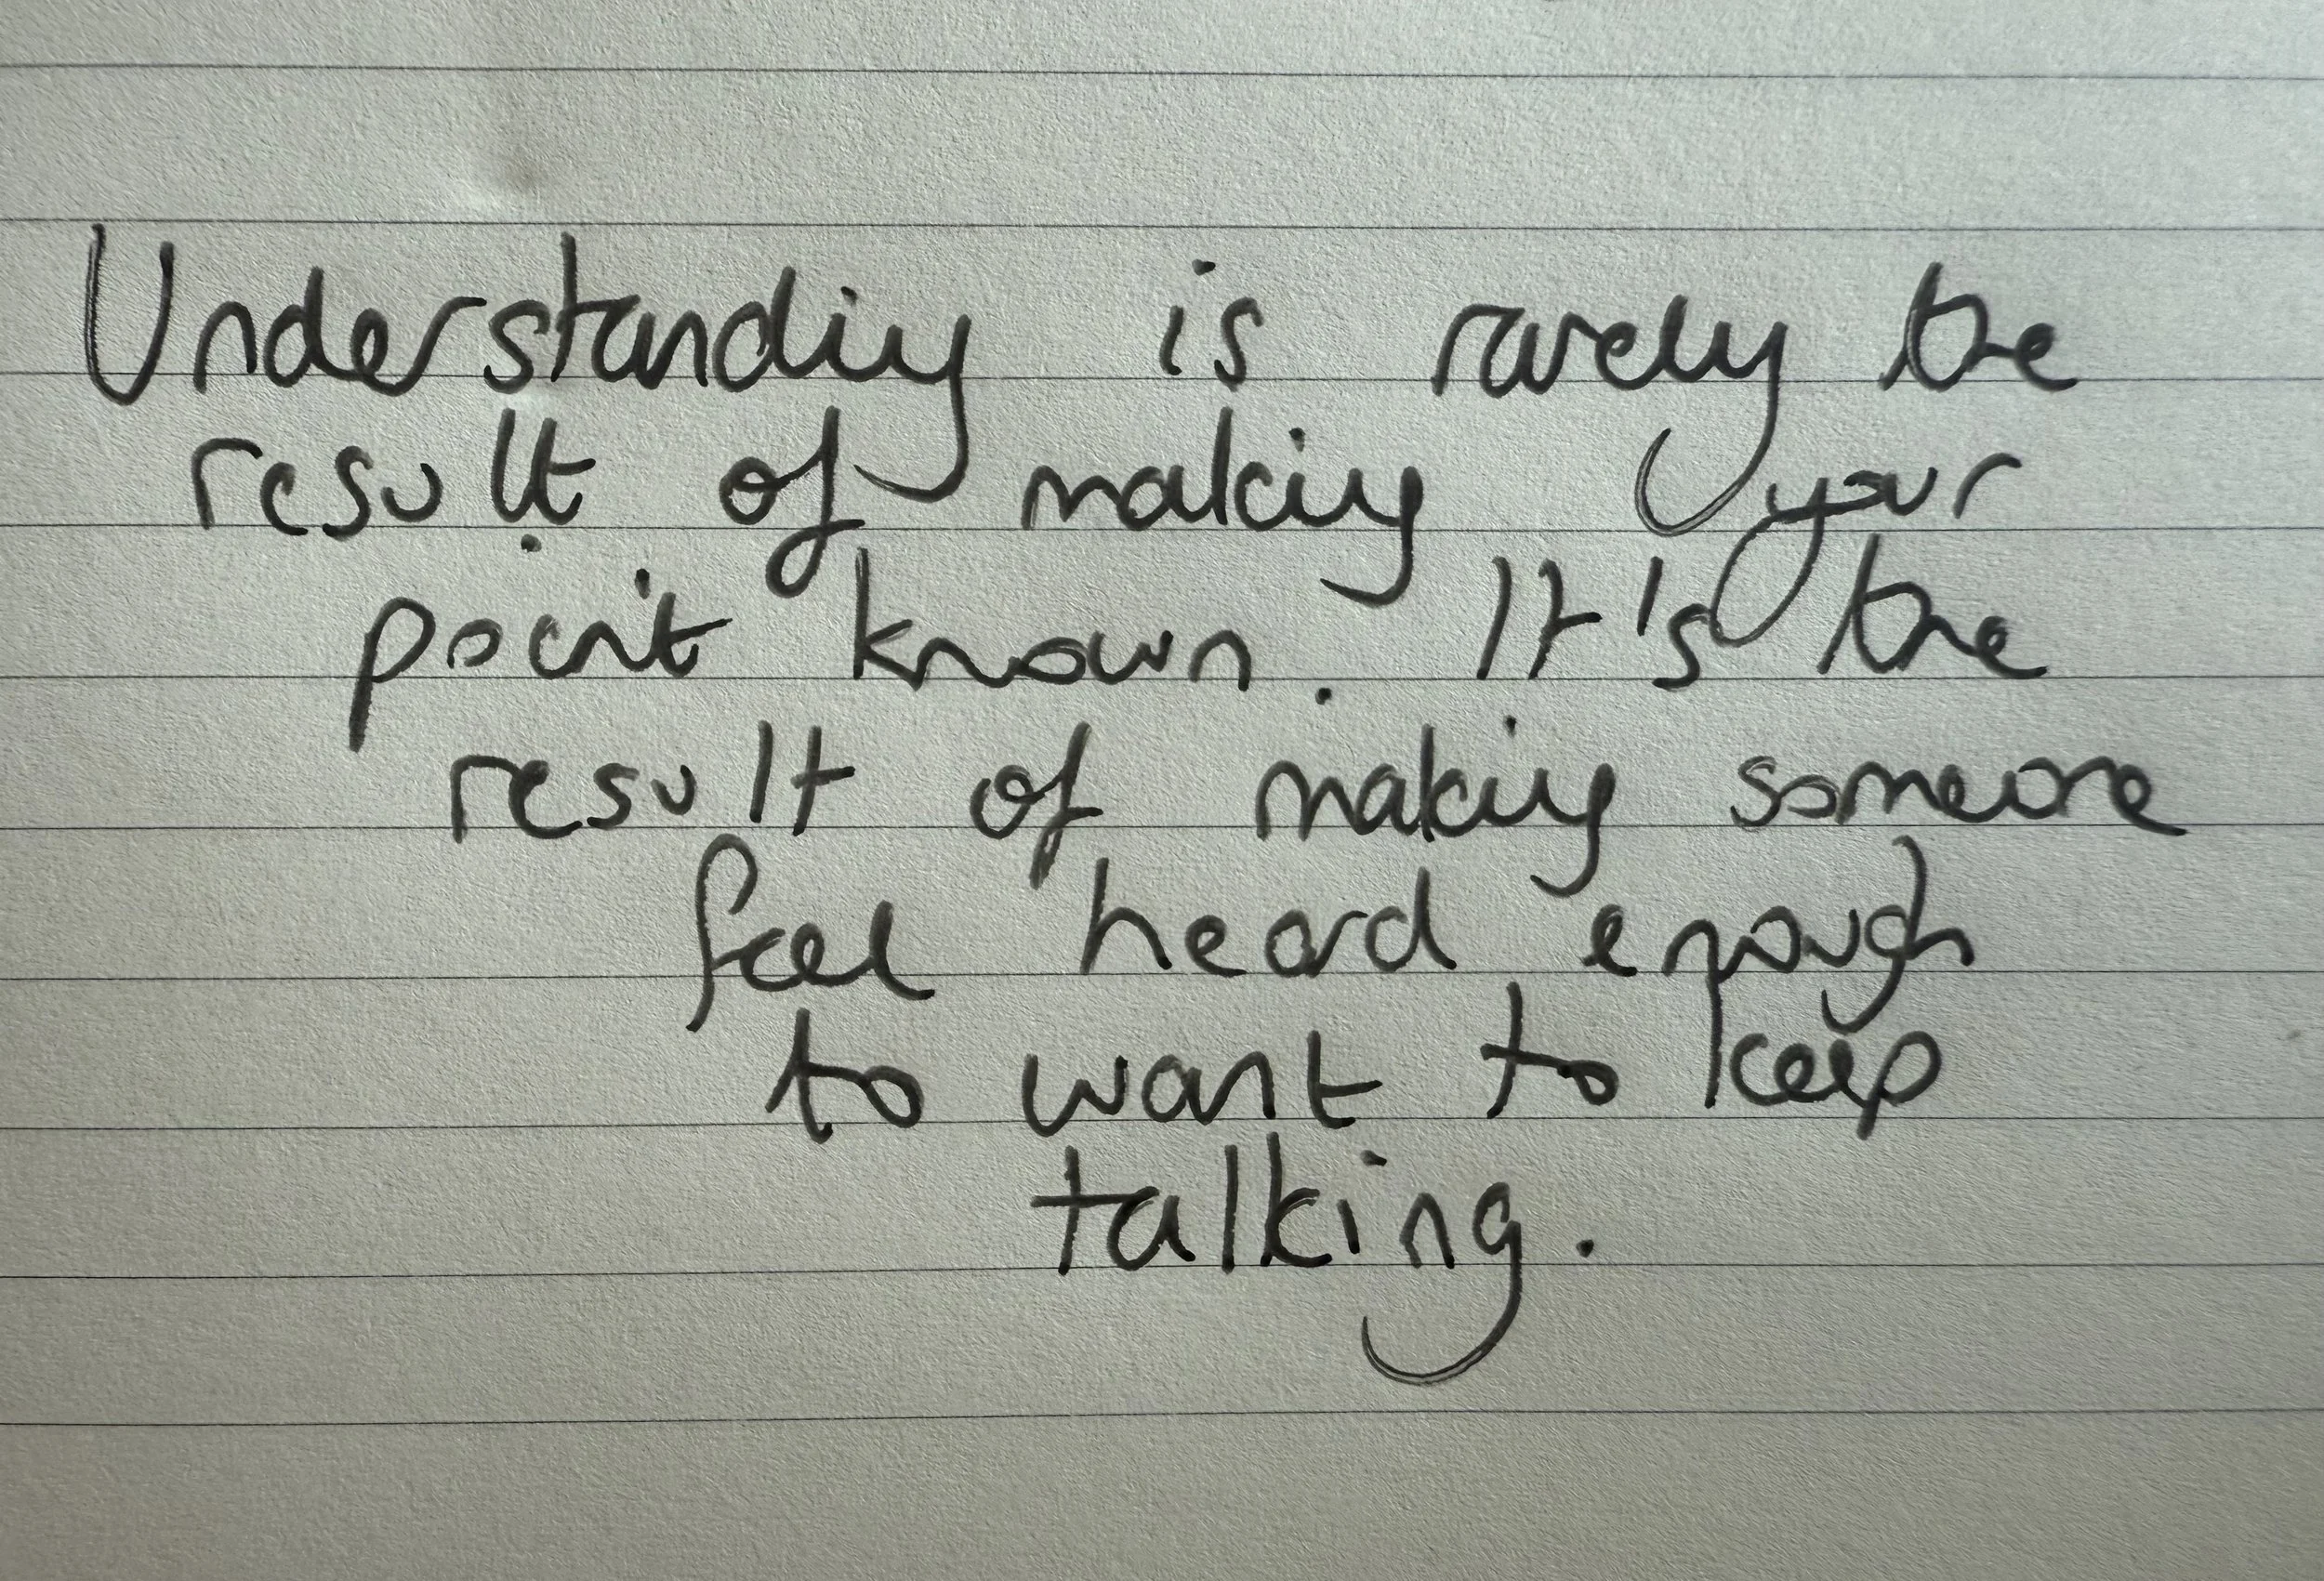 Understanding is rarely the
result of making your
point known. It's the
result of making someone
feel heard enough
to want to keep
talking.